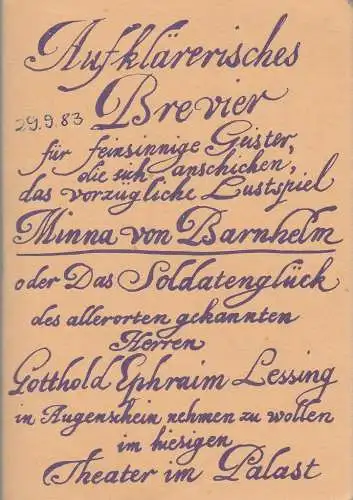 Aufklärerisches
Brevier
29.9.83
für feinsinnige Geister,
die sich anschicken,
das vorzügliche Lustspiel
Minna von Barnhelm
oder Das Soldatenglück
des allerorten gekannten
Herren
Gotthold Ephraim Lessing
in Augenschein nehmen zu wollen
im hiesigen
Theater im Palast